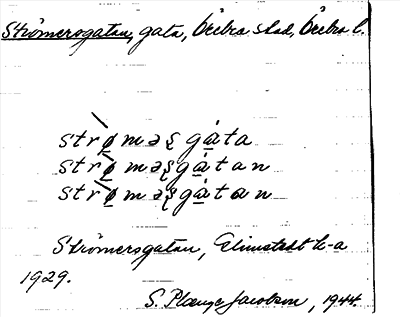 Strömersgatan, gata, Örebro stad, Örebro l.
strø̀məʂgáta
strø̀məʂgátan
strø̀məʂgátan
Strömersgatan, Elmstedt k-a
1929.
S. Plænge Jacobson, 1944.